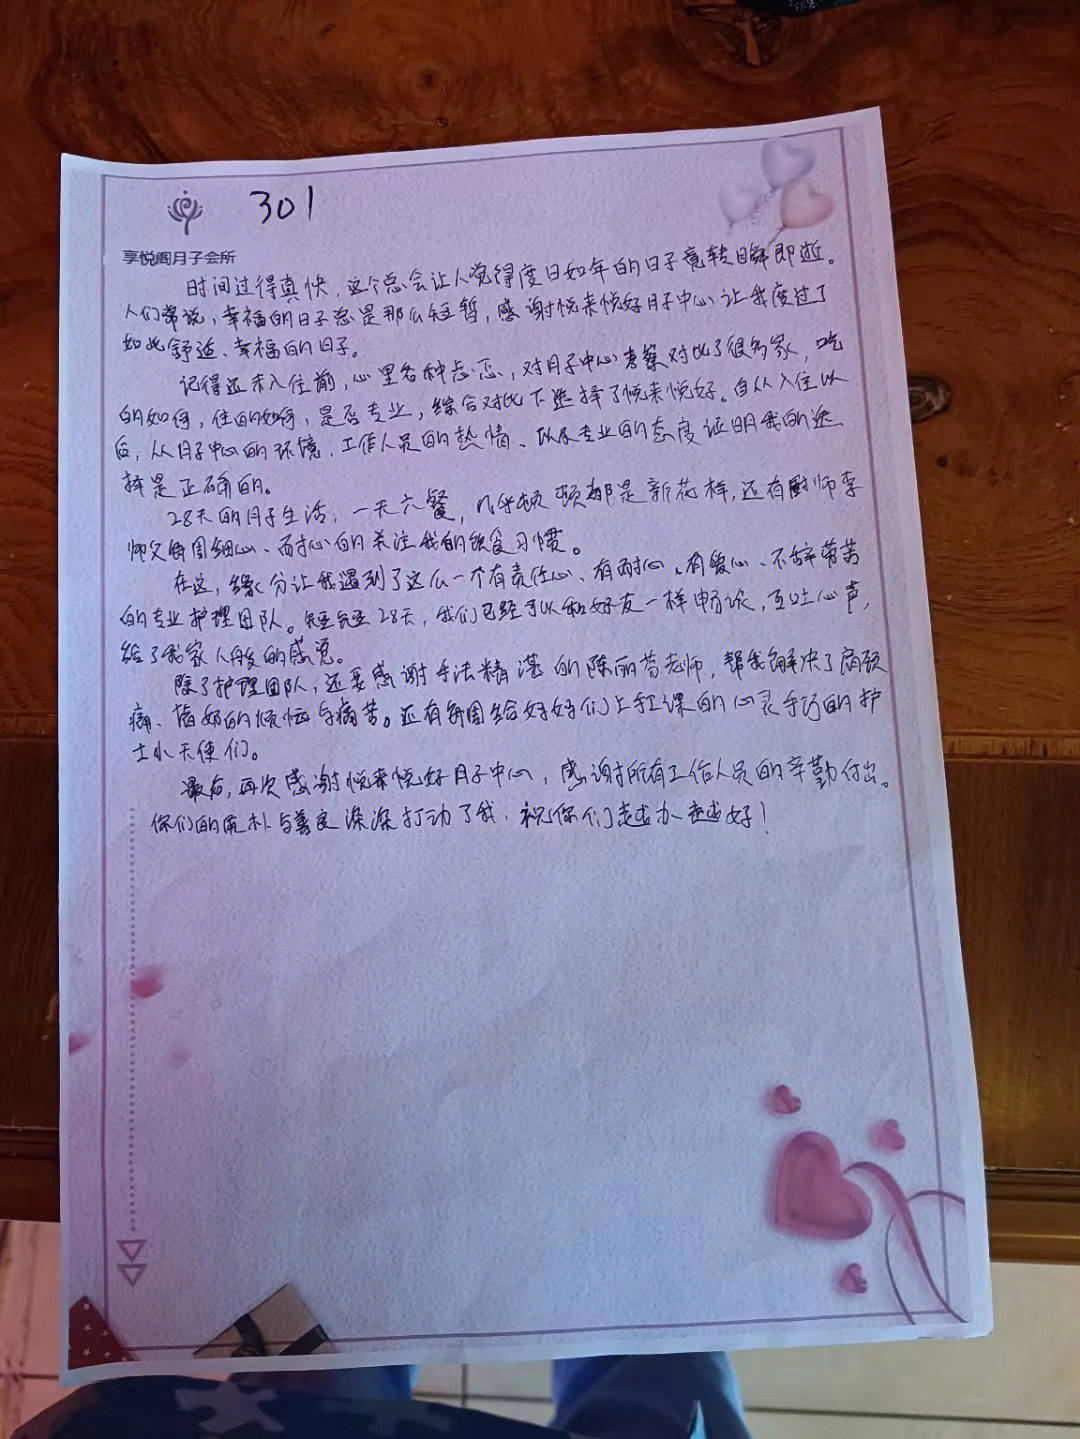 301
享悦阁月子会所
时间过得真快,这个总会让人觉得度日如年的日子竟转瞬即逝。
人们常说,幸福的日子总是那么短暂,感谢悦来悦好月子中心让我度过了
如此舒适、幸福的日子。
记得还未入住前,心里各种忐忑,对月子中心考察对比了很多家,吃
的如何,住的如何,是否专业,综合对比下选择了悦来悦好。自从入住以
后,从月子中心的环境,工作人员的热情、以及专业的态度证明我的选
择是正确的。
28天的月子生活,一天六餐,几乎顿顿都是新花样,还有厨师李
师父每周细心、耐心的关注我的饮食习惯。
在这,缘分让我遇到了这么一个有责任心、有耐心、有爱心、不辞劳苦
的专业护理团队。短短28天,我们已经可以和好友一样畅谈,互吐心声,
给了我家人般的感觉。
除了护理团队,还要感谢手法精湛的陈丽芳老师,帮我解决了肩颈
痛、的烦恼与痛苦。还有每周给妈妈们上手工课的心灵手巧的护
士小天使们。
最后,再次感谢悦来悦好月子中心,感谢所有工作人员的辛勤付出。
你们的质朴与善良深深打动了我,祝你们越办越好!